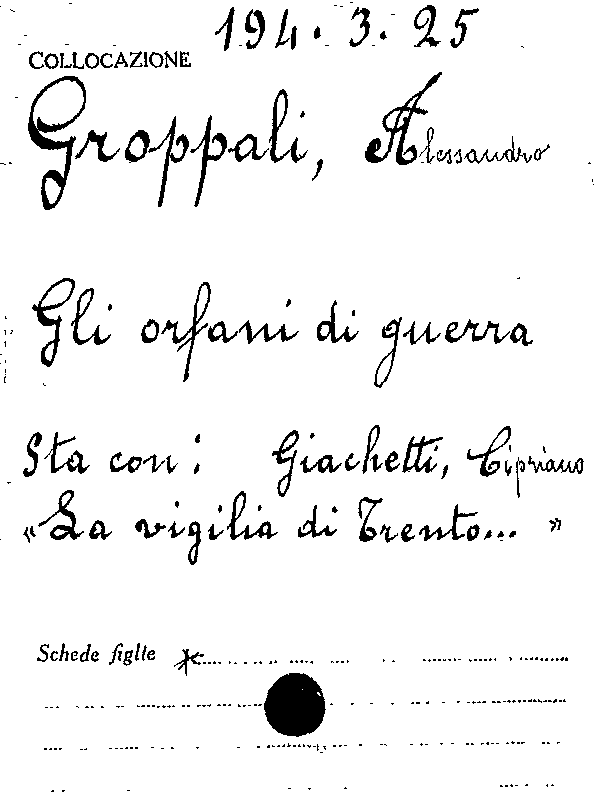 194. 3. 25
COLLOCAZIONE
Groppali, Alessandro
Gli orfani di guerra
Sta con: Giachetti, Cipriano
«La vigilia di Trento... »
Schede figlie